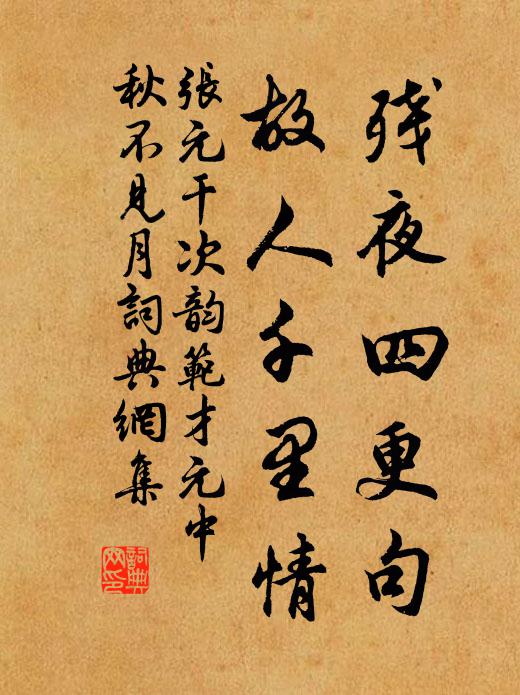 残夜四更句
故人千里情
張元干次韵範才元中
秋不见月詞典網集
詞典网印